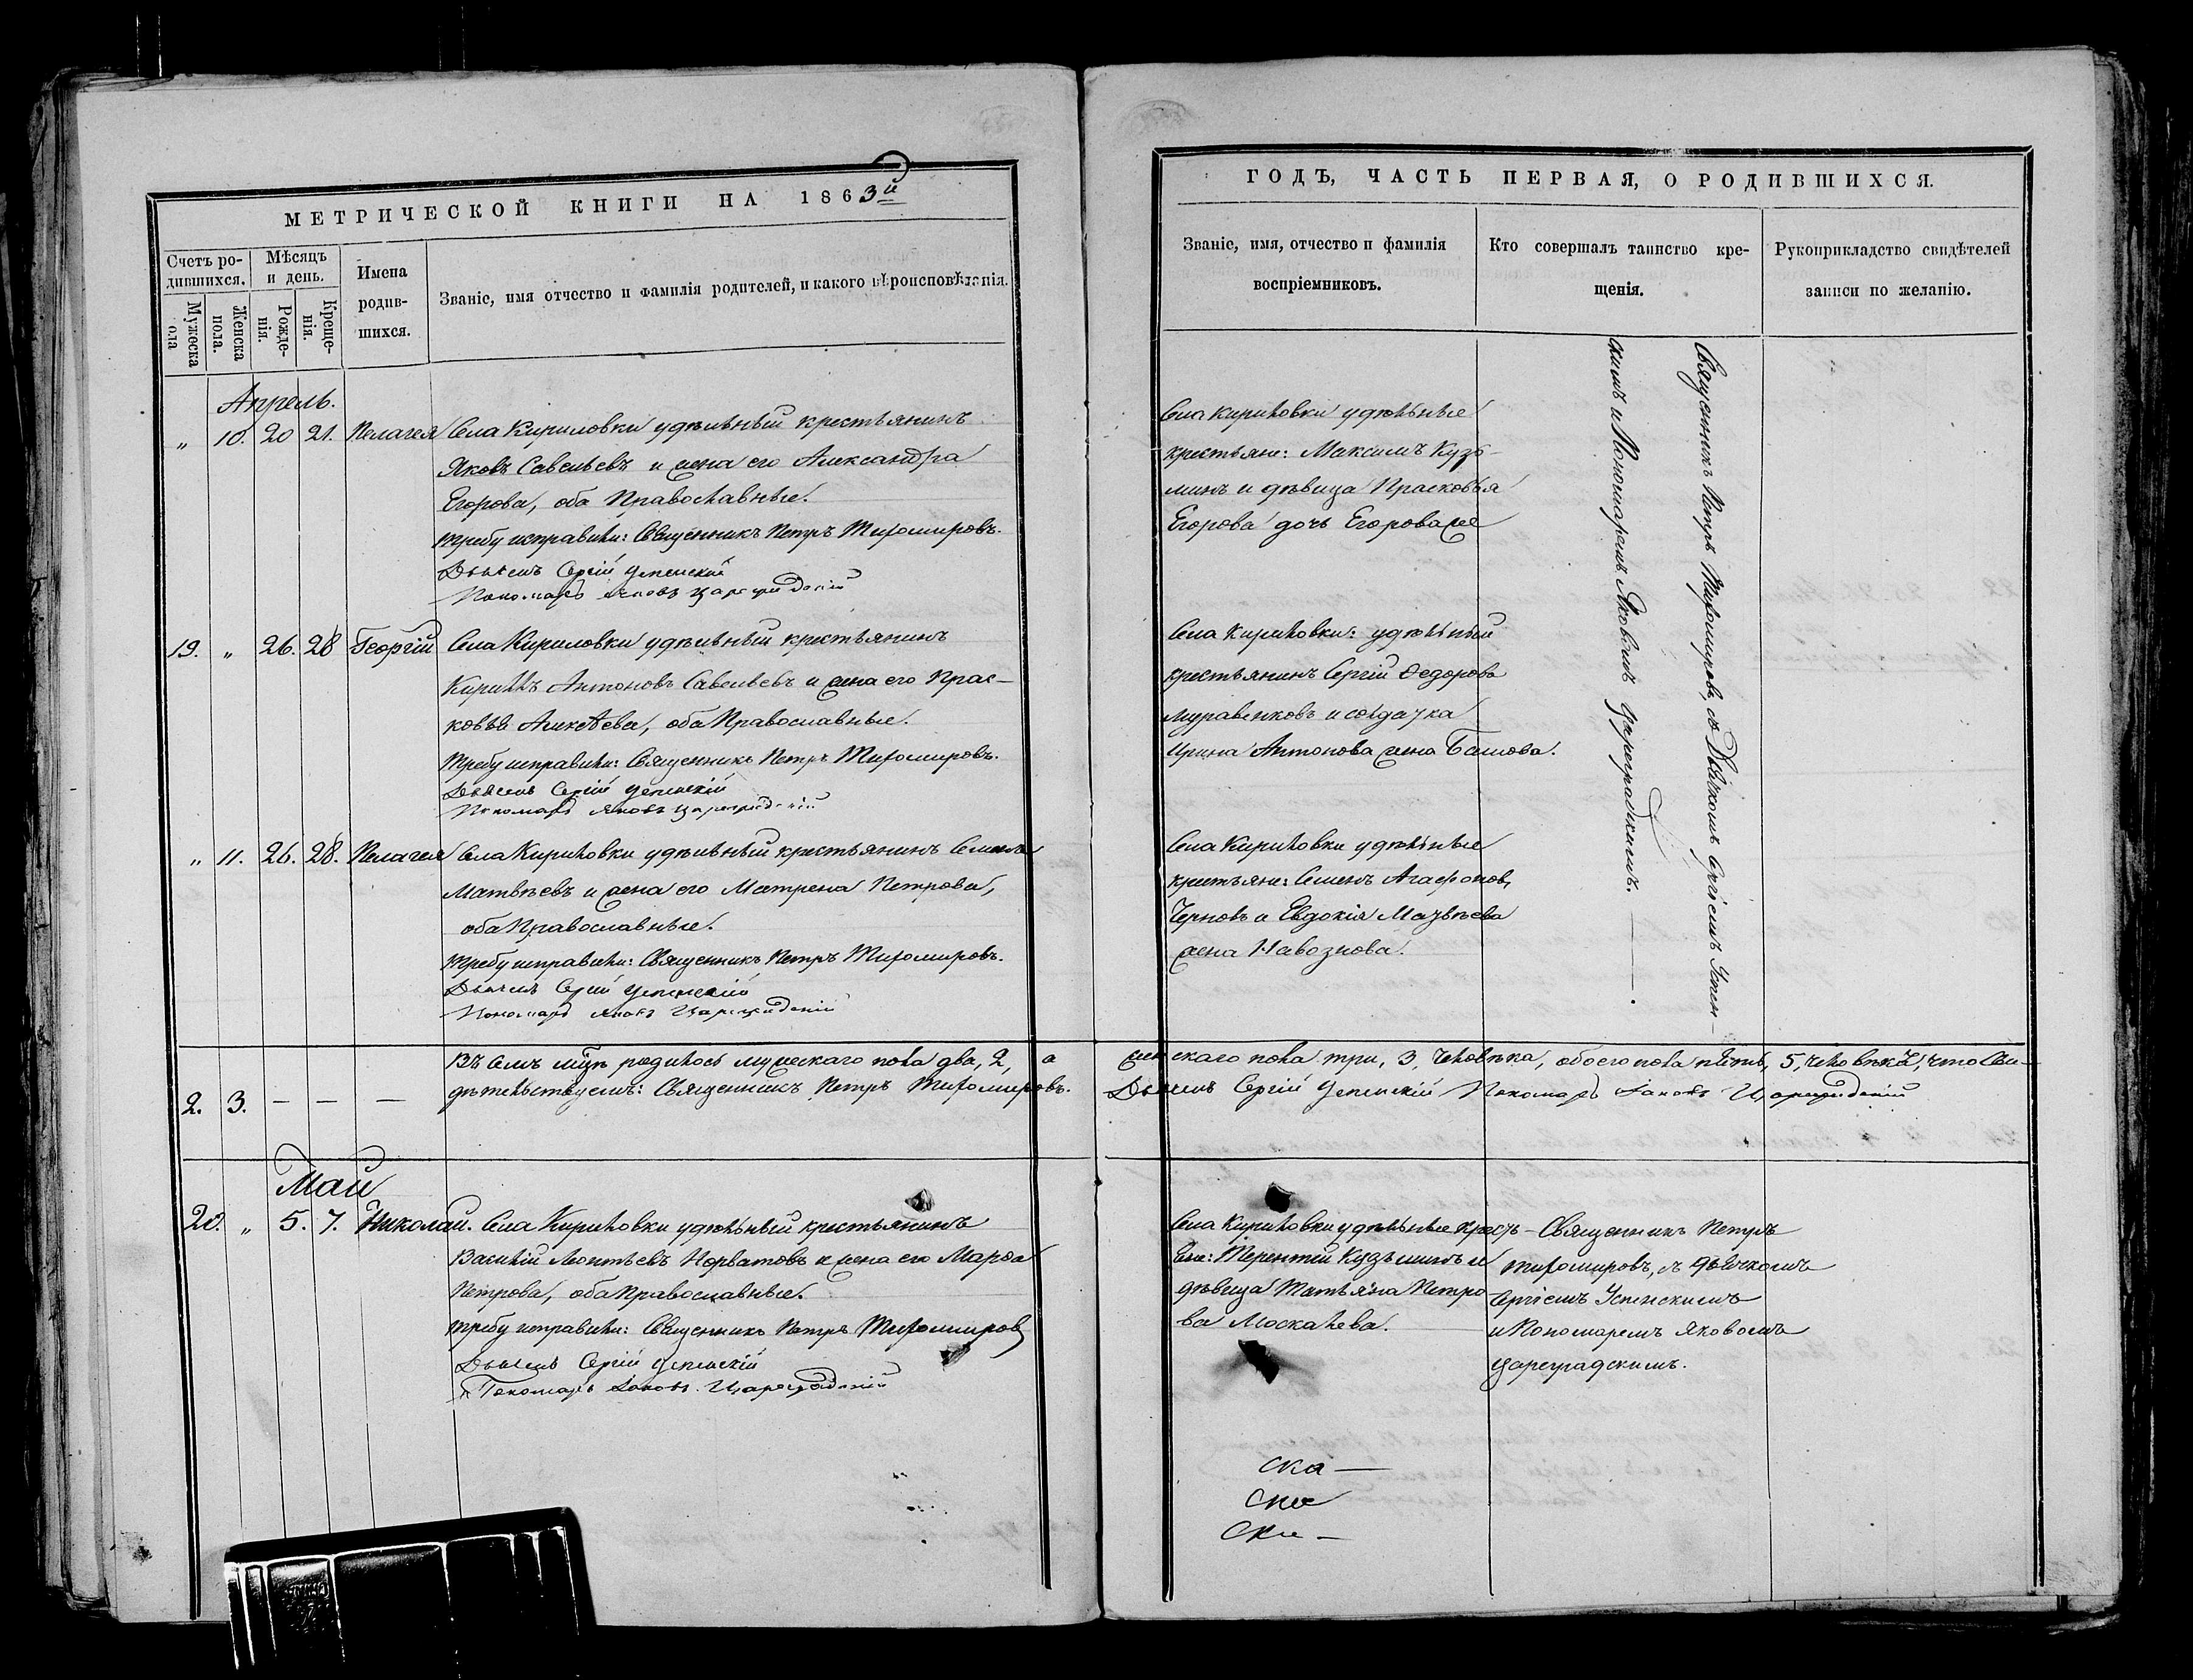 МЕТРИЧЕСКОЙ КНИГИ НА 1863й
Счетъ ро-
дившихся.
Мѣсяцъ
и день.
Мужеска
пола
Женска
пола.
Рожде-
нія.
Креще-
нія.
Имена
родив-
шихся.
Званіе, имя отчество и фамилія родителей, и какого вѣроисповѣданія.
Апрель.
„ 10. 20 21. Пелагея Села Кириловки удѣльный крестьянинъ
Яковъ Савельевъ и жена его Александра
Егорова, оба Православные.
Требу исправили: Священникъ Петръ Тихомировъ.
Дьячекъ Сергій Успенскій
Пономарь Яковъ Цареградскій
19. „ 26. 28 Георгій Села Кириловки удѣльный крестьянинъ
Кириллъ Антоновъ Савельевъ и жена его Прас-
ковья Алексѣева, оба Православные.
Требу исправили: Священникъ Петръ Тихомировъ.
Дьячекъ Сергій Успенскій
Пономарь Яковъ Цареградскій
„ 11. 26. 28. Пелагея Села Кириловки удѣльный крестьянинъ Семенъ
Матвѣевъ и жена его Матрена Петрова,
оба Православные.
Требу исправили: Священникъ Петръ Тихомировъ.
Дьячекъ Сергій Успенскій
Пономарь Яковъ Цареградскій
Въ семъ мцѣ родилось мужескаго пола два, 2, а
2. 3. — — — дѣтельствуемъ: Священникъ Петръ Тихомировъ.
Май
20. „ 5. 7. Николай. Села Кириловки удѣльный крестьянинъ
Василій Леонтьевъ Норватовъ и жена его Марѳа
Петрова, оба Православные.
Требу исправили: Священникъ Петръ Тихомировъ
Дьячекъ Сергій Успенскій
Пономарь Яковъ Цареградскій
ГОДЪ, ЧАСТЬ ПЕРВАЯ, О РОДИВШИХСЯ.
Званіе, имя, отчество и фамилія
воспріемниковъ.
Кто совершалъ таинство кре-
щенія.
Рукоприкладство свидѣтелей
записи по желанію.
Села Кириловки удѣльные
крестьяне: Максимъ Кузь-
минъ и дѣвица Прасковья
Егорова дочь
Села Кириловки: удѣльный
крестьянинъ Сергій Ѳедорова
Муравенковъ и солдачка
Ирина Антонова жена
Села Кириловки удѣльные
крестьяне: Семенъ Агафонов,
Черновъ и Евдокія
жена Навознова.
Священникъ Петръ Тихомировъ, съ Дьячкомъ Сергіемъ Успен-
скимъ и Пономаремъ Яковымъ Цареградскимъ.
женскаго пола три, 3, человѣка, обоего пола пять, 5, человѣкъ, что сви-
Дьячекъ Сергій Успенскій Пономарь Яковъ Цареградскій
Села Кириловки удѣльные кресть-
яне: Терентій Кузьминъ и
дѣвица Татьяна Петро
ва Москалева.
Священникъ Петръ
Тихомировъ, съ дьячкомъ
Сергіемъ Успенскимъ
и Пономаремъ Яковомъ
Цареградскимъ.
ска —
ске
ски —